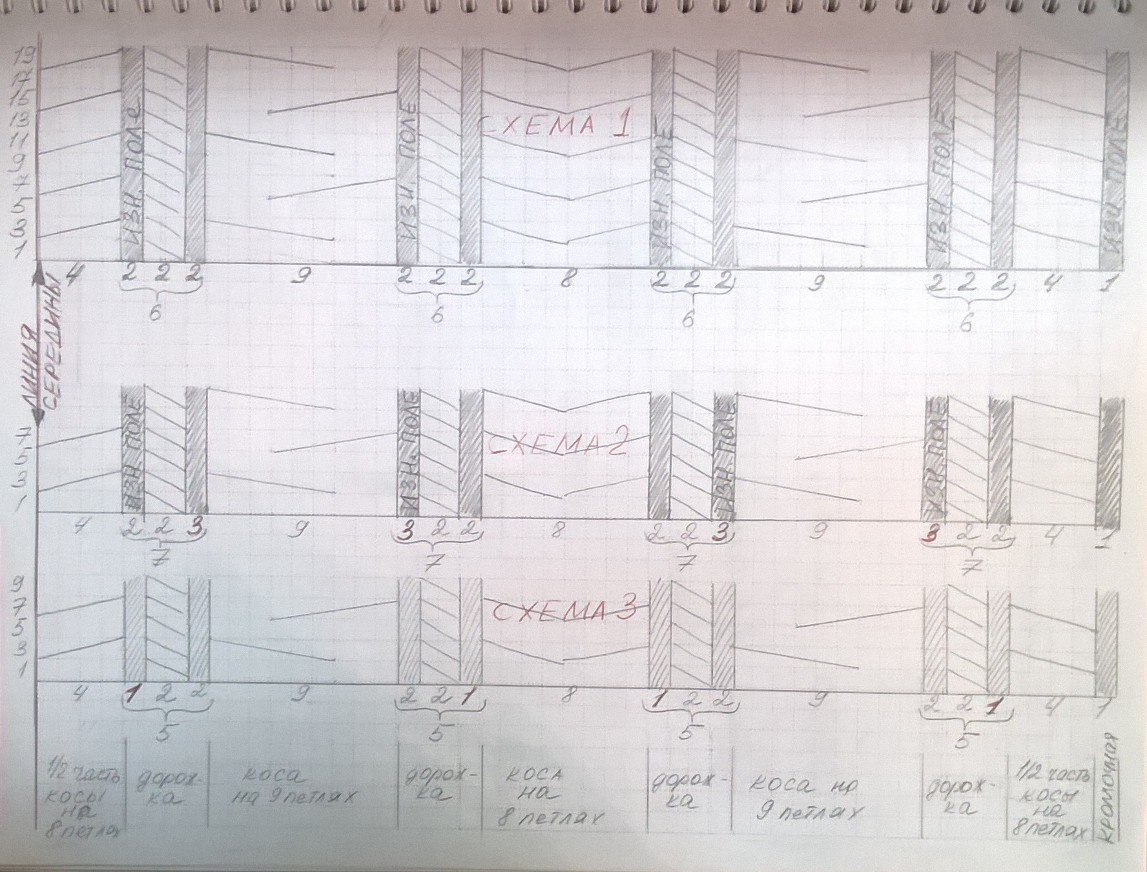 19
17
15
13
11
9
7
5
3
1
ИЗН. ПОЛЕ
ИЗН. ПОЛЕ
СХЕМА 1
ИЗН. ПОЛЕ
ИЗН. ПОЛЕ
ИЗН. ПОЛЕ
4 2 2 2 9 2 2 2 8 2 2 2 9 2 2 2 4 1
6 6 6 6
ЛИНИЯ
СЕРЕДИНЫ
7
5
3
1
ИЗН. ПОЛЕ
ИЗН. ПОЛЕ
СХЕМА 2
ИЗН. ПОЛЕ
ИЗН. ПОЛЕ
4 2 2 3 9 3 2 2 8 2 2 3 9 3 2 2 4 1
7 7 7 7
9
7
5
3
1
СХЕМА 3
4 1 2 2 9 2 2 1 8 1 2 2 9 2 2 1 4 1
5 5 5 5
1/2 часть
косы
на
8 петлах
дорож-
ка
коса
на 9 петлах
дорож-
ка
коса
на
8 петлах
дорож-
ка
коса на
9 петлах
дорож-
ка
1/2 часть
косы
на
8 петлах
кромочная